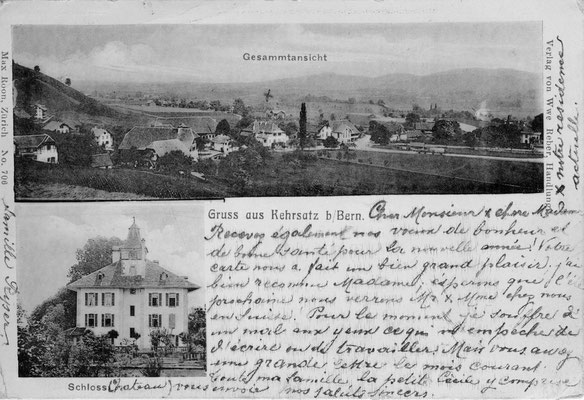 Gesammtansicht
Max Roon, Zürich No. 706
Verlag von Wwe Rober, Handlung
x notre residence
actuelle
Gruss aus Kehrsatz b/Bern.
Cher Monsieur & chere Madame
Recevez également nos vœux de bonheur et
de bonne santé pour la nouvelle année! Votre
carte nous a fait un bien grand plaisir. j'ai
bien reconnu Madame, espérons que l'été
prochaine nous verrons Mr & Mme chez nous
en Suisse. Pour le moment je souffre d'
un mal aux yeux ce qui m'empêche de
d'écrire ou de travailler, Mais vous aurez
une grande lettre le mois courant.
Toute ma famille, la petite Cécile y comprise
vous envoie nos saluts sincers.
Schloss (Chateau)
Famille